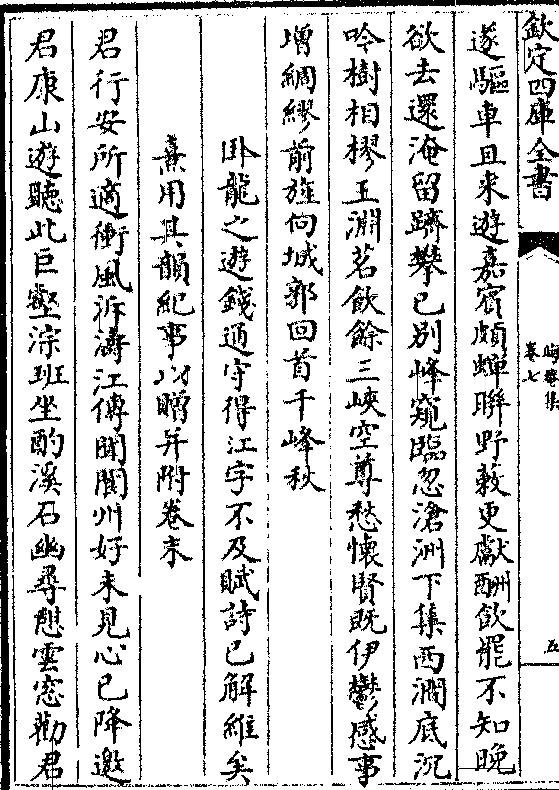 欽定四庫全書
晦菴集
卷七
五
遂驅車且來遊嘉賓頗蟬聯野蔌更獻酬飲罷不知晚
欲去還淹留躋攀已別峰窺臨忽滄洲下集西澗底沉
吟樹相樛玉淵茗飲餘三峽空尊愁懷賢既伊鬱感事
增綢繆前旌向城郭回首千峰秋
卧龍之遊錢通守得江字不及賦詩已解維矣
熹用其韻紀事以贈并附卷末
君行安所適衝風泝濤江傳聞閩州好未見心已降邀
君康山遊聽此巨壑淙班坐酌溪石幽尋慰雲窓勸君